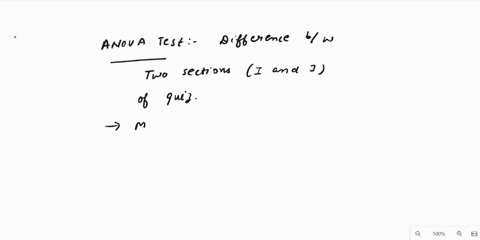 ANOVA Test:- Difference b/w
Two sections (I and J)
of quiz.
→ M
100%